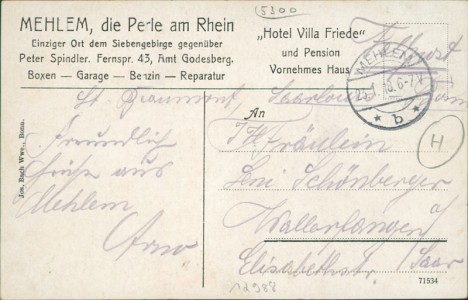 (5300
MEHLEM, die Perle am Rhein
Einziger Ort dem Siebengebirge gegenüber
Peter Spindler. Fernspr. 43, Amt Godesberg.
Boxen — Garage — Benzin — Reparatur
„Hotel Villa Friede“
und Pension
Vornehmes Haus
Feldpost
MEHLEM
* b *
An
H
Freundlich
Grüße aus
Mehlem
Fräulein
Leni Schönberger
Wallerfangen
a/
Elisabethstr. Saar
Jos. Bach Wwe., Bonn.
12988
71534